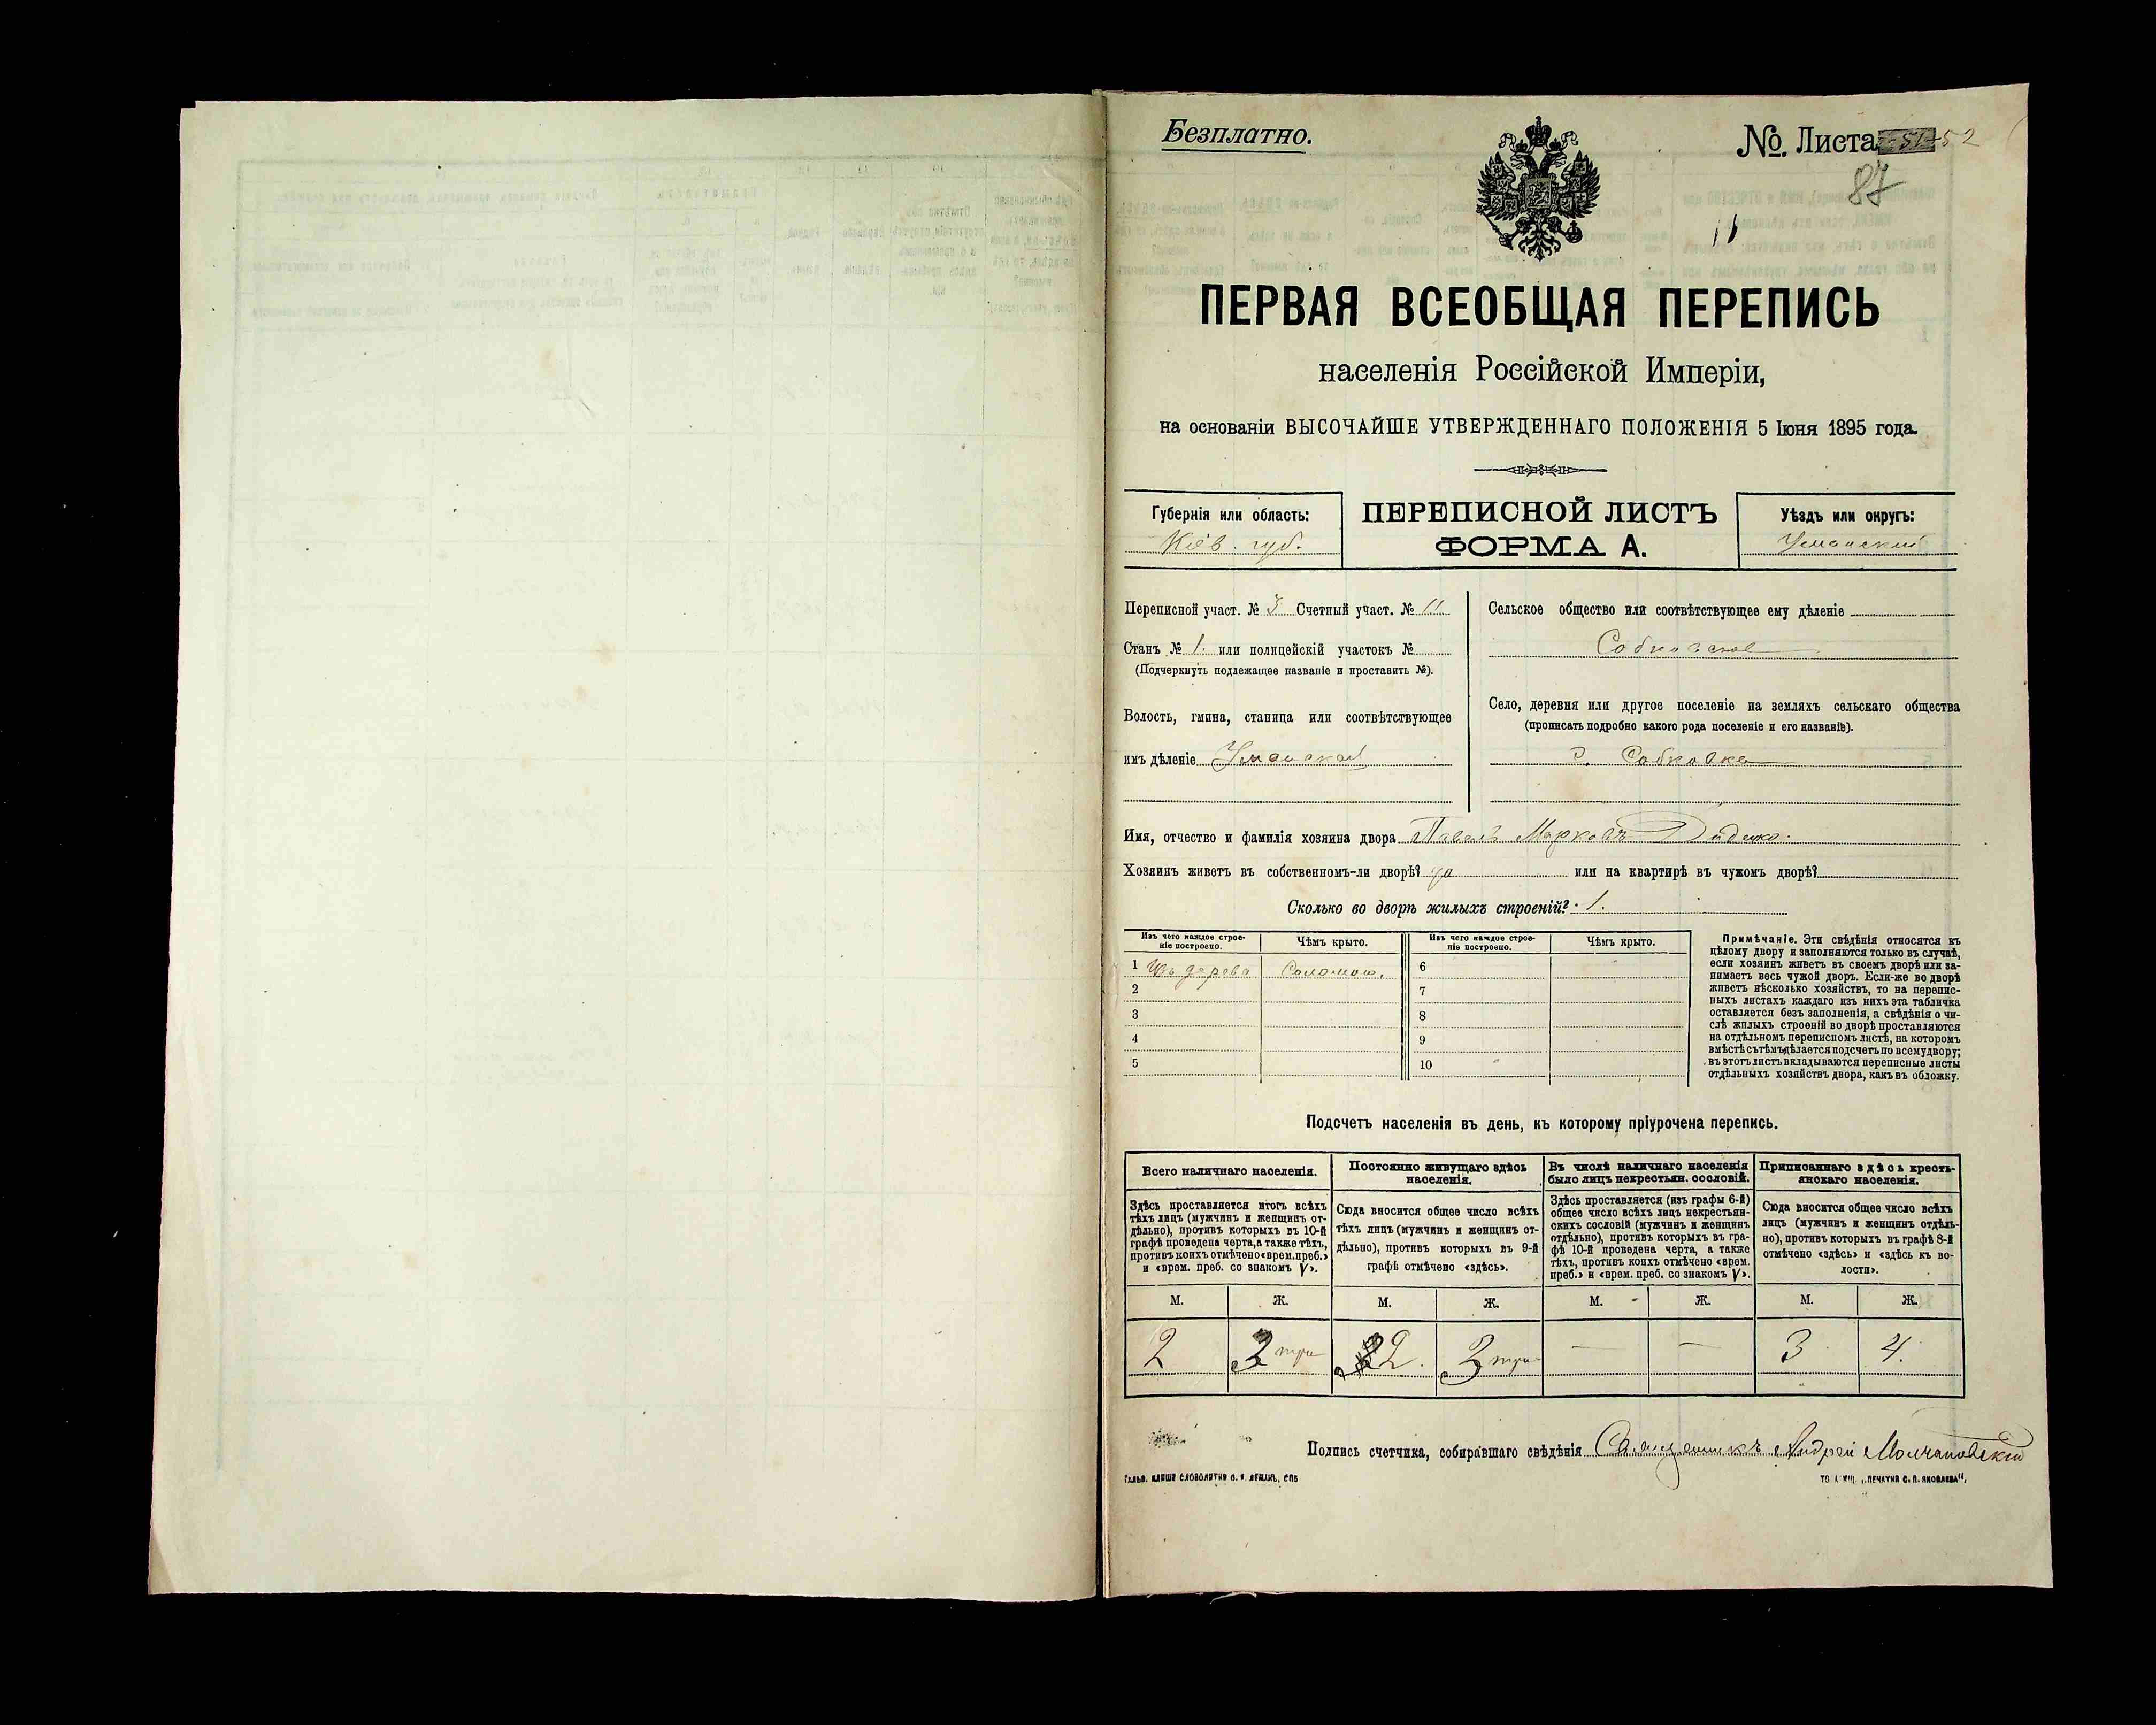 Безплатно.
№ Листа 51 52
87
11
ПЕРВАЯ ВСЕОБЩАЯ ПЕРЕПИСЬ
населенія Россійской Имперіи,
на основаніи ВЫСОЧАЙШЕ УТВЕРЖДЕННАГО ПОЛОЖЕНІЯ 5 Іюня 1895 года.
Губернія или область:
Кіев. губ.
ПЕРЕПИСНОЙ ЛИСТЪ
ФОРМА А.
Уѣздъ или округъ:
Уманскій
Переписной участ. № 3 Счетный участ. № 11
Станъ № 1. или полицейскій участокъ №
(Подчеркнуть подлежащее названіе и проставить №).
Волость, гмина, станица или соотвѣтствующее
имъ дѣленіе Уманская
Сельское общество или соотвѣтствующее ему дѣленіе
Собковское
Село, деревня или другое поселеніе на земляхъ сельскаго общества
(прописать подробно какого рода поселеніе и его названіе).
с. Собковка
Имя, отчество и фамилія хозяина двора Павелъ Марковъ Диденко.
Хозяинъ живетъ въ собственномъ-ли дворѣ? да или на квартирѣ въ чужомъ дворѣ?
Сколько во дворѣ жилыхъ строеній? 1.
Изъ чего каждое строе-
ніе построено.
Чѣмъ крыто.
Изъ чего каждое строе-
ніе построено.
Чѣмъ крыто.
1 Изъ дерева Соломою. 6
2 7
3 8
4 9
5 10
Примѣчаніе. Эти свѣдѣнія относятся къ
цѣлому двору и заполняются только въ случаѣ,
если хозяинъ живетъ въ своемъ дворѣ или за-
нимаетъ весь чужой дворъ. Если-же во дворѣ
живетъ нѣсколько хозяйствъ, то на перепис-
ныхъ листахъ каждаго изъ нихъ эта табличка
оставляется безъ заполненія, а свѣдѣнія о чи-
слѣ жилыхъ строеній во дворѣ проставляются
на отдѣльномъ переписномъ листѣ, на которомъ
вмѣстѣ съ тѣмъ дѣлается подсчетъ по всему двору;
въ этотъ листъ вкладываются переписные листы
отдѣльныхъ хозяйствъ двора, какъ въ обложку.
Подсчетъ населенія въ день, къ которому пріурочена перепись.
Всего наличнаго населенія.
Здѣсь проставляется итогъ всѣхъ
тѣхъ лицъ (мужчинъ и женщинъ от-
дѣльно), противъ которыхъ въ 10-й
графѣ проведена черта, а также тѣхъ,
противъ коихъ отмѣчено «врем. преб.»
и «врем. преб. со знакомъ V».
Постоянно живущаго здѣсь
населенія.
Сюда вносится общее число всѣхъ
тѣхъ лицъ (мужчинъ и женщинъ от-
дѣльно), противъ которыхъ въ 9-й
графѣ отмѣчено «здѣсь».
Въ числѣ наличнаго населенія
было лицъ некрестьян. сословій.
Здѣсь проставляется (изъ графы 6-й)
общее число всѣхъ лицъ некрестьян-
скихъ сословій (мужчинъ и женщинъ
отдѣльно), противъ которыхъ въ гра-
фѣ 10-й проведена черта, а также
тѣхъ, противъ коихъ отмѣчено «врем.
преб.» и «врем. преб. со знакомъ V».
Приписаннаго здѣсь кресть-
янскаго населенія.
Сюда вносится общее число всѣхъ
лицъ (мужчинъ и женщинъ отдѣль-
но), противъ которыхъ въ графѣ 8-й
отмѣчено «здѣсь» и «здѣсь къ во-
лости».
М. Ж. М. Ж. М. Ж. М. Ж.
2 3 три 2. 3 три — — 3 4.
Подпись счетчика, собиравшаго свѣдѣнія Священникъ Андрей Молчановскій
ГАЛЬВ. КЛИШЕ СЛОВОЛИТНИ О. И. ЛЕМАНЪ, СПБ
„ПЕЧАТНЯ С. П. ЯКОВЛЕВА“,